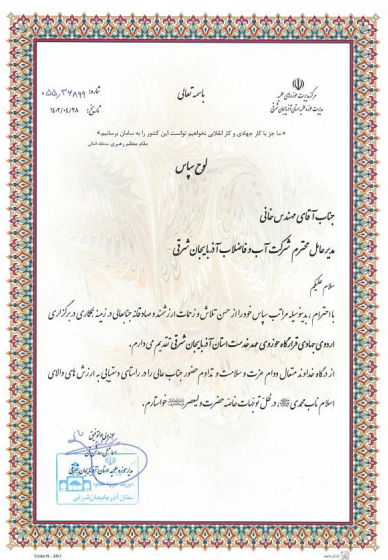 باسمه تعالی
مرکز مدیریت حوزه های علمیه
مدیریت حوزه علمیه استان آذربایجان شرقی
شماره: ۰۵۵٫۳۶۸۹۹
تاریخ: ۱۴۰۲/۰۴/۲۸
« ما جز با کار جهادی و کار انقلابی نخواهیم توانست این کشور را به سامان برسانیم.»
مقام معظم رهبری مدظله العالی
لوح سپاس
جناب آقای مهندس خانی
مدیرعامل محترم شرکت آب و فاضلاب آذربایجان شرقی
سلام علیکم
با احترام ، بدینوسیله مراتب سپاس خود را از حسن تلاش و زحمات ارزشمند و صادقانه جنابعالی در زمینه همکاری در برگزاری
اردوی جهادی قرارگاه حوزوی عهد خدمت استان آذربایجان شرقی تقدیم می دارم.
از درگاه خداوند متعال دوام عزت و سلامت و تداوم حضور جناب عالی را در راستای دستیابی به ارزش های والای
اسلام ناب محمدی ، در ظل توجهات خاصه حضرت ولیعصر خواستارم.
مدیر حوزه علمیه استان آذربایجان شرقی
استان آذربایجان شرقی
Code:N - 28/1